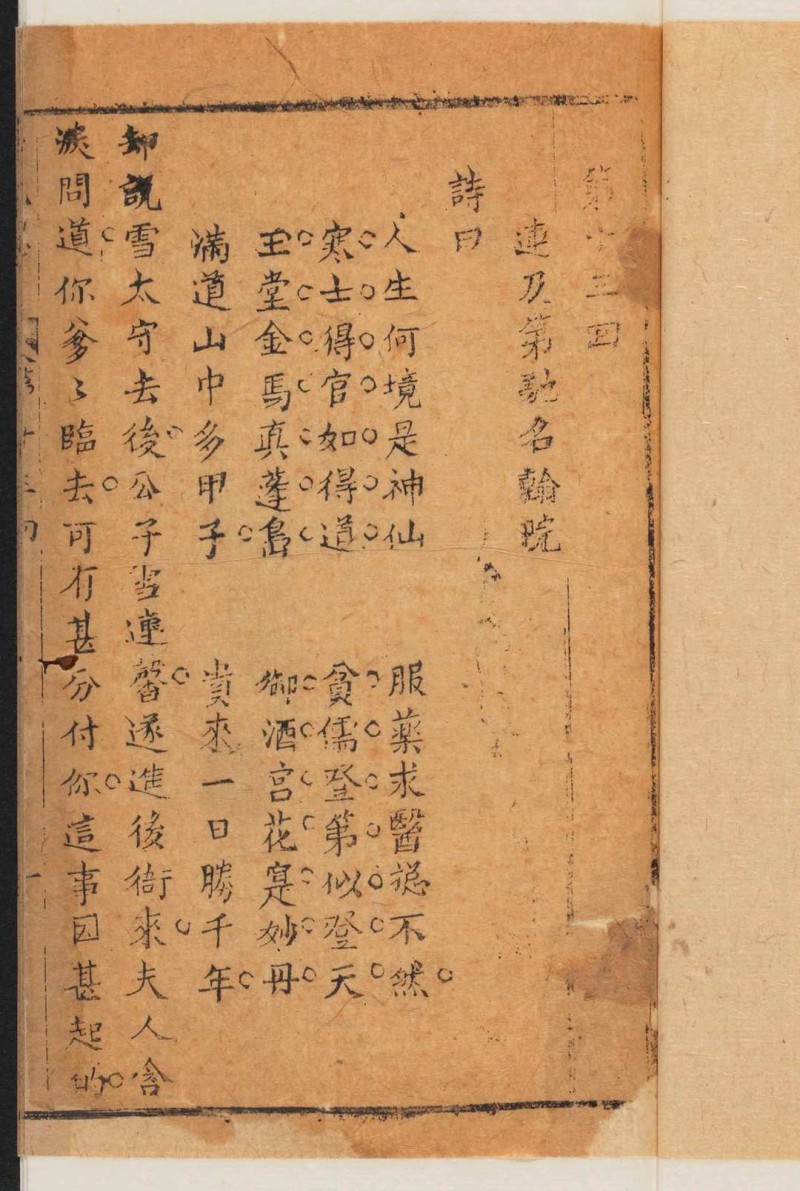 第十三回
連及第馳名翰院
詩曰
人生何境是神仙　服藥求醫總不然
寒士得官如得道　貧儒登第似登天
玉堂金馬真蓬島　御酒宮花寔妙丹
滿道山中多甲子　貴來一日勝千年
却說雪太守去後公子雪連馨遂進後衙來夫人含
淚問道你爹〻臨去可有甚分付你這事因甚起的